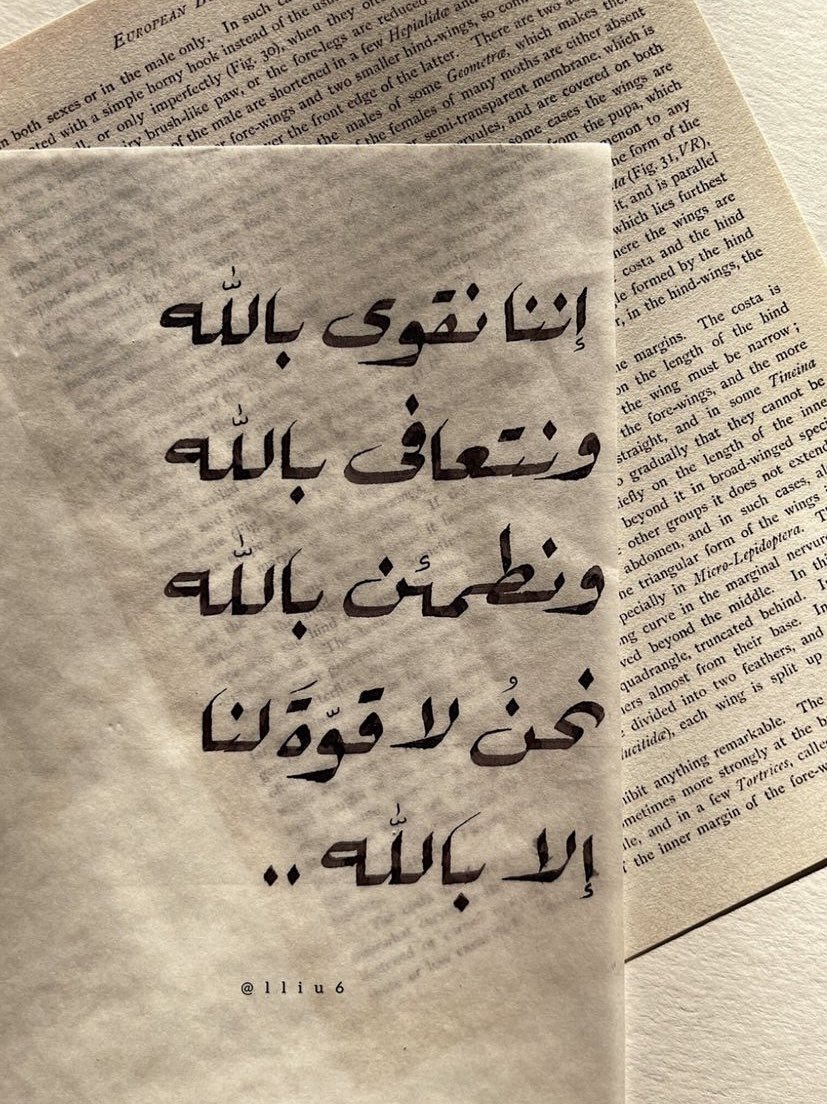 EUROPEAN
n both sexes or in the male only. In such
with a simple horny hook instead of the
or only imperfectly (Fig. 30), when they
brush-like paw, or the fore-legs are reduced
of the male are shortened in a few Hepialidæ and
fore-wings and two smaller hind-wings, so
the front edge of the latter. There are two
the males of some Geometræ, which makes
the females of many moths are either absent
or semi-transparent membrane, which is
and are covered on both
some cases the wings are
from the pupa, which
to any
the form of the
(Fig. 31, VR),
it, and is parallel
which lies furthest
where the wings are
costa and the hind
formed by the hind
in the hind-wings, the
margins. The costa is
on the length of the hind
the wing must be narrow;
the fore-wings, and the more
straight, and in some Tineina
gradually that they cannot be
on the length of the
beyond it in broad-winged
other groups it does not
abdomen, and in such cases,
triangular form of the wings
in Micro-Lepidoptera.
curve in the marginal
beyond the middle. In
quadrangle, truncated behind.
almost from their base. In
divided into two feathers, and
each wing is split up
anything remarkable. The
more strongly at the
and in a few Tortrices,
the inner margin of the
إننا نقوى بالله
ونتعافى بالله
ونطمئن بالله
نحنُ لا قوّةَ لنا
إلا بالله ..
@lliu6